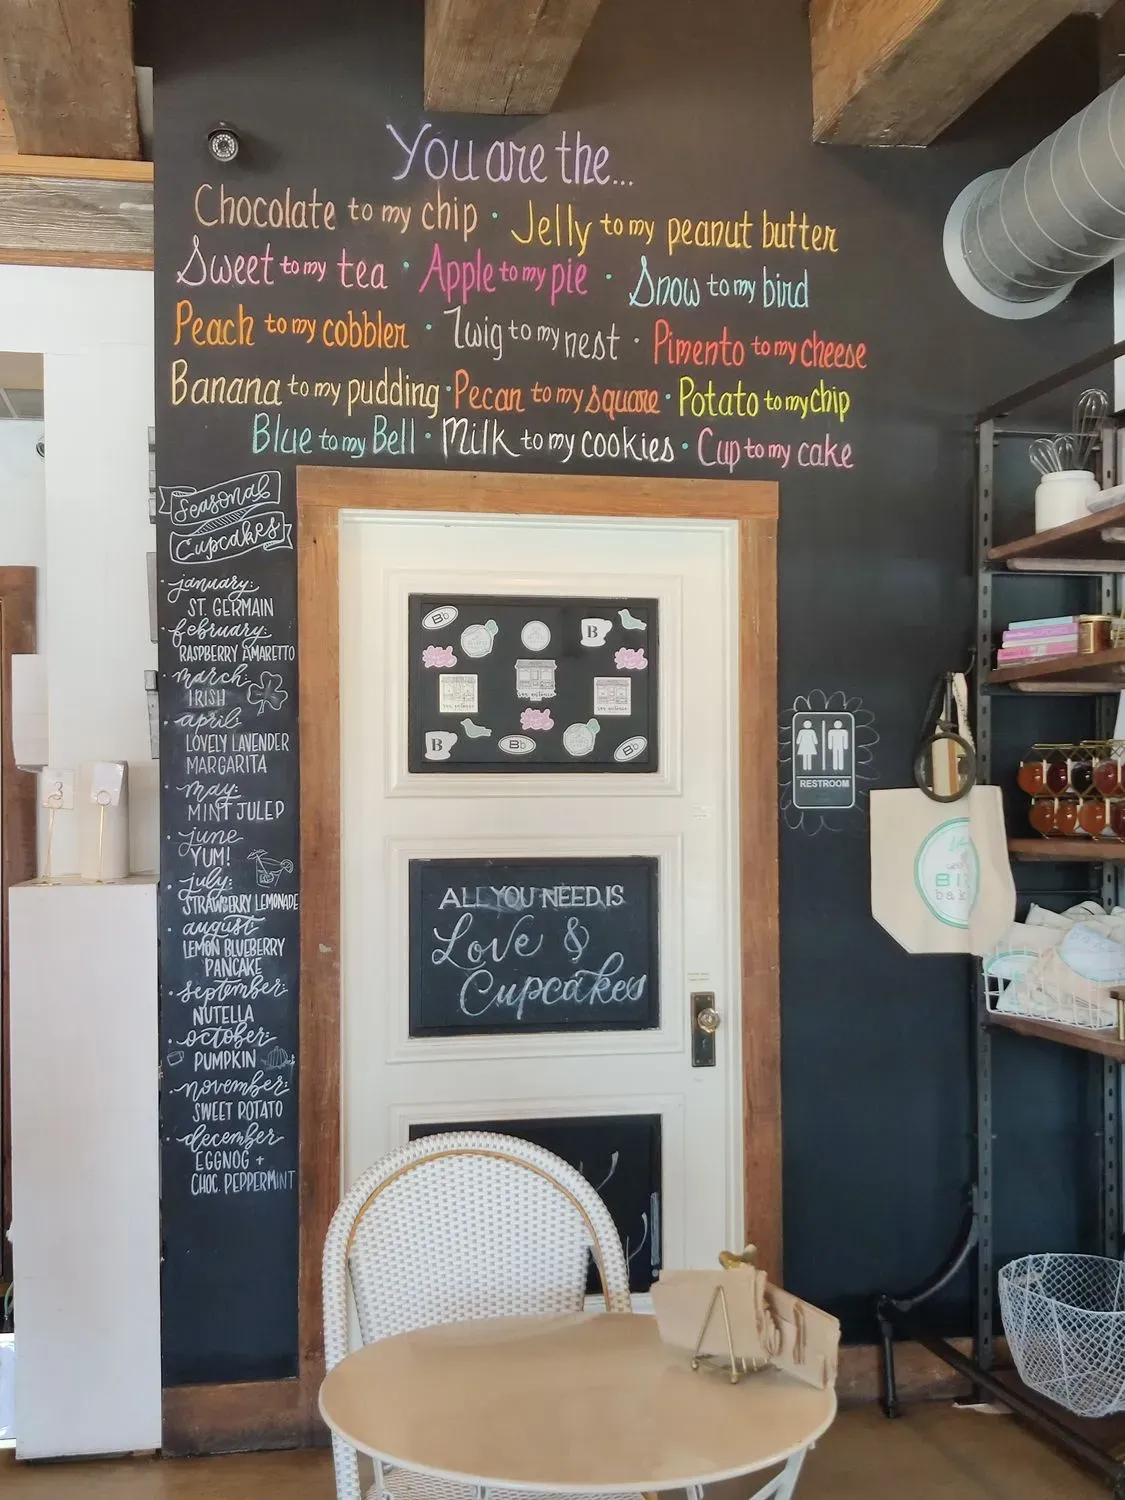 You are the...
Chocolate to my chip · Jelly to my peanut butter
Sweet to my tea · Apple to my pie · Snow to my bird
Peach to my cobbler · Twig to my nest · Pimento to my cheese
Banana to my pudding · Pecan to my square · Potato to my chip
Blue to my Bell · Milk to my cookies · Cup to my cake
Seasonal
Cupcakes
· january:
ST. GERMAIN
· february:
RASPBERRY AMARETTO
· march:
IRISH
· april:
LOVELY LAVENDER
MARGARITA
· may:
MINT JULEP
· june
YUM!
· july:
STRAWBERRY LEMONADE
· august:
LEMON BLUEBERRY
PANCAKE
· september:
NUTELLA
· october:
PUMPKIN
· november:
SWEET POTATO
· december
EGGNOG +
CHOC. PEPPERMINT
Bb
B
B
Bb
Bb
ALL YOU NEED IS
Love &
Cupcakes
RESTROOM
3